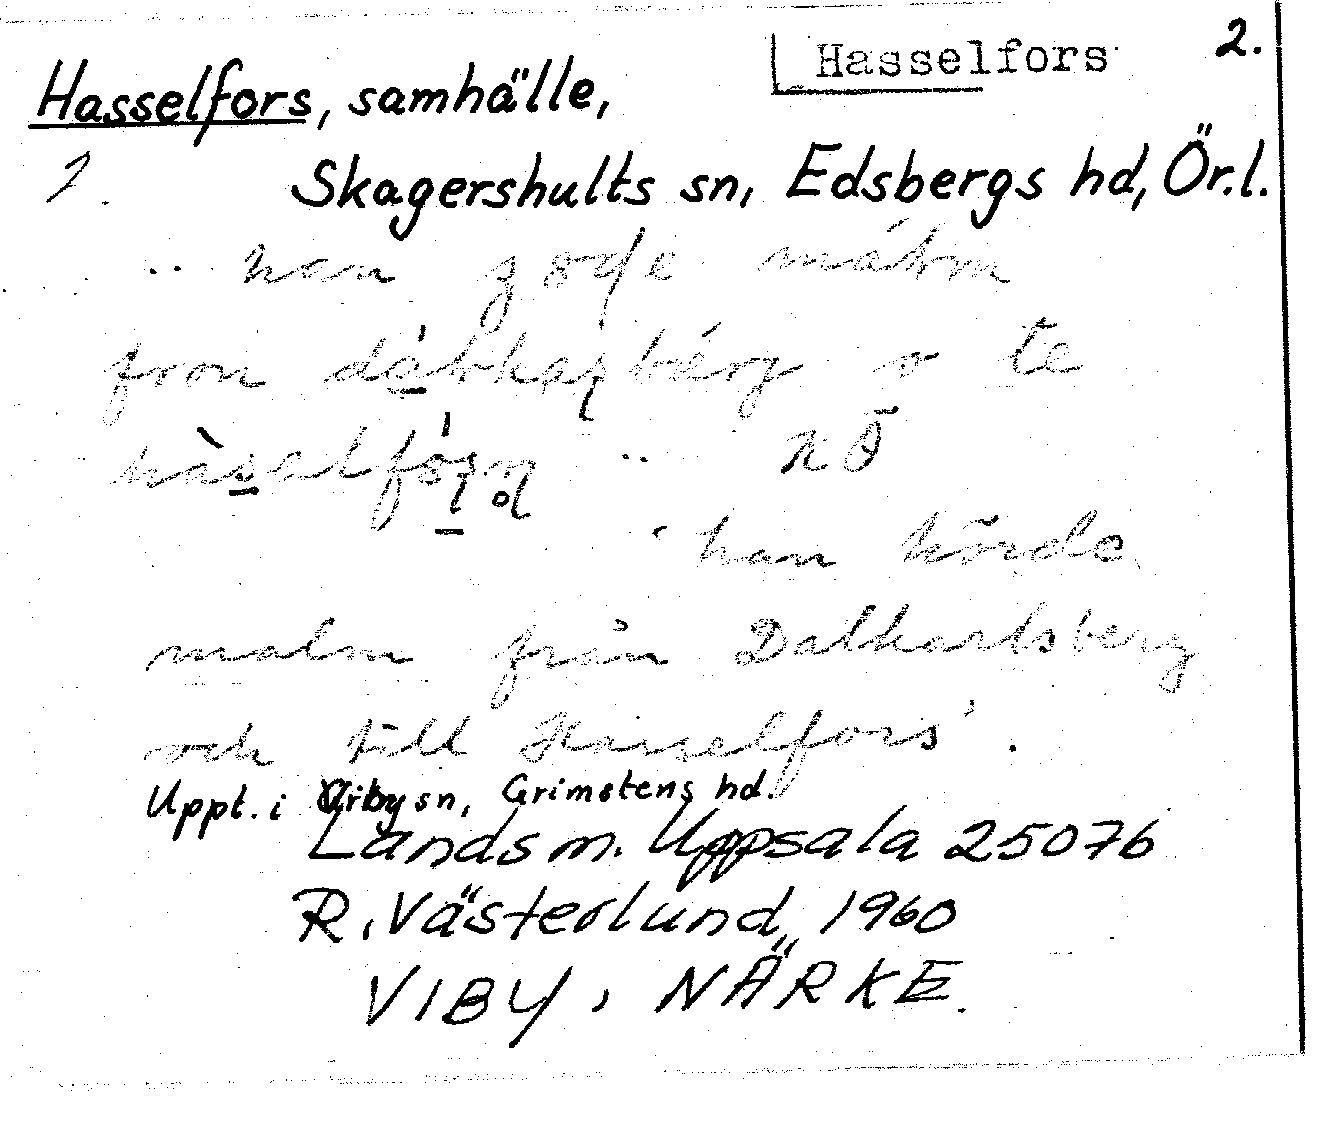 Hasselfors 2.
Hasselfors, samhälle,
2.
Skagershults sn, Edsbergs hd, Ör.l.
.. han
te
..
'han körde
malm från Dalkarlsberg
och till Hasselfors'.
Uppt. i Viby sn, Grimstens hd.
Landsm. Uppsala 25076
R. Västerlund, 1960
VIBY, NÄRKE.